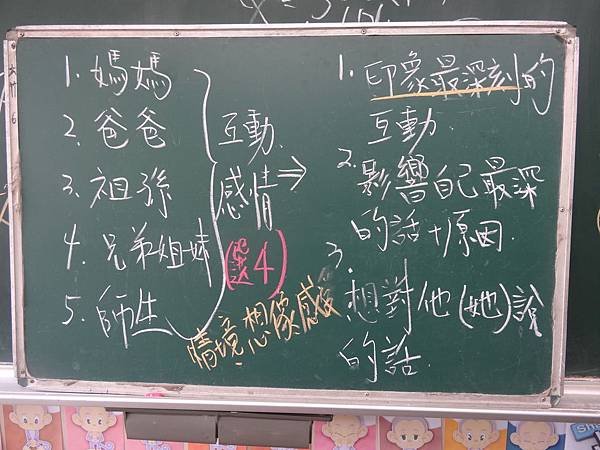 1. 媽媽
2. 爸爸
3. 祖孫
4. 兄弟姐妹
5. 師生
互動
感情 ⇒
(選4)
情境想像感
1. 印象最深刻的
互動
2. 影響自己最深
的話+原因
3.
想對他(她)說
的話